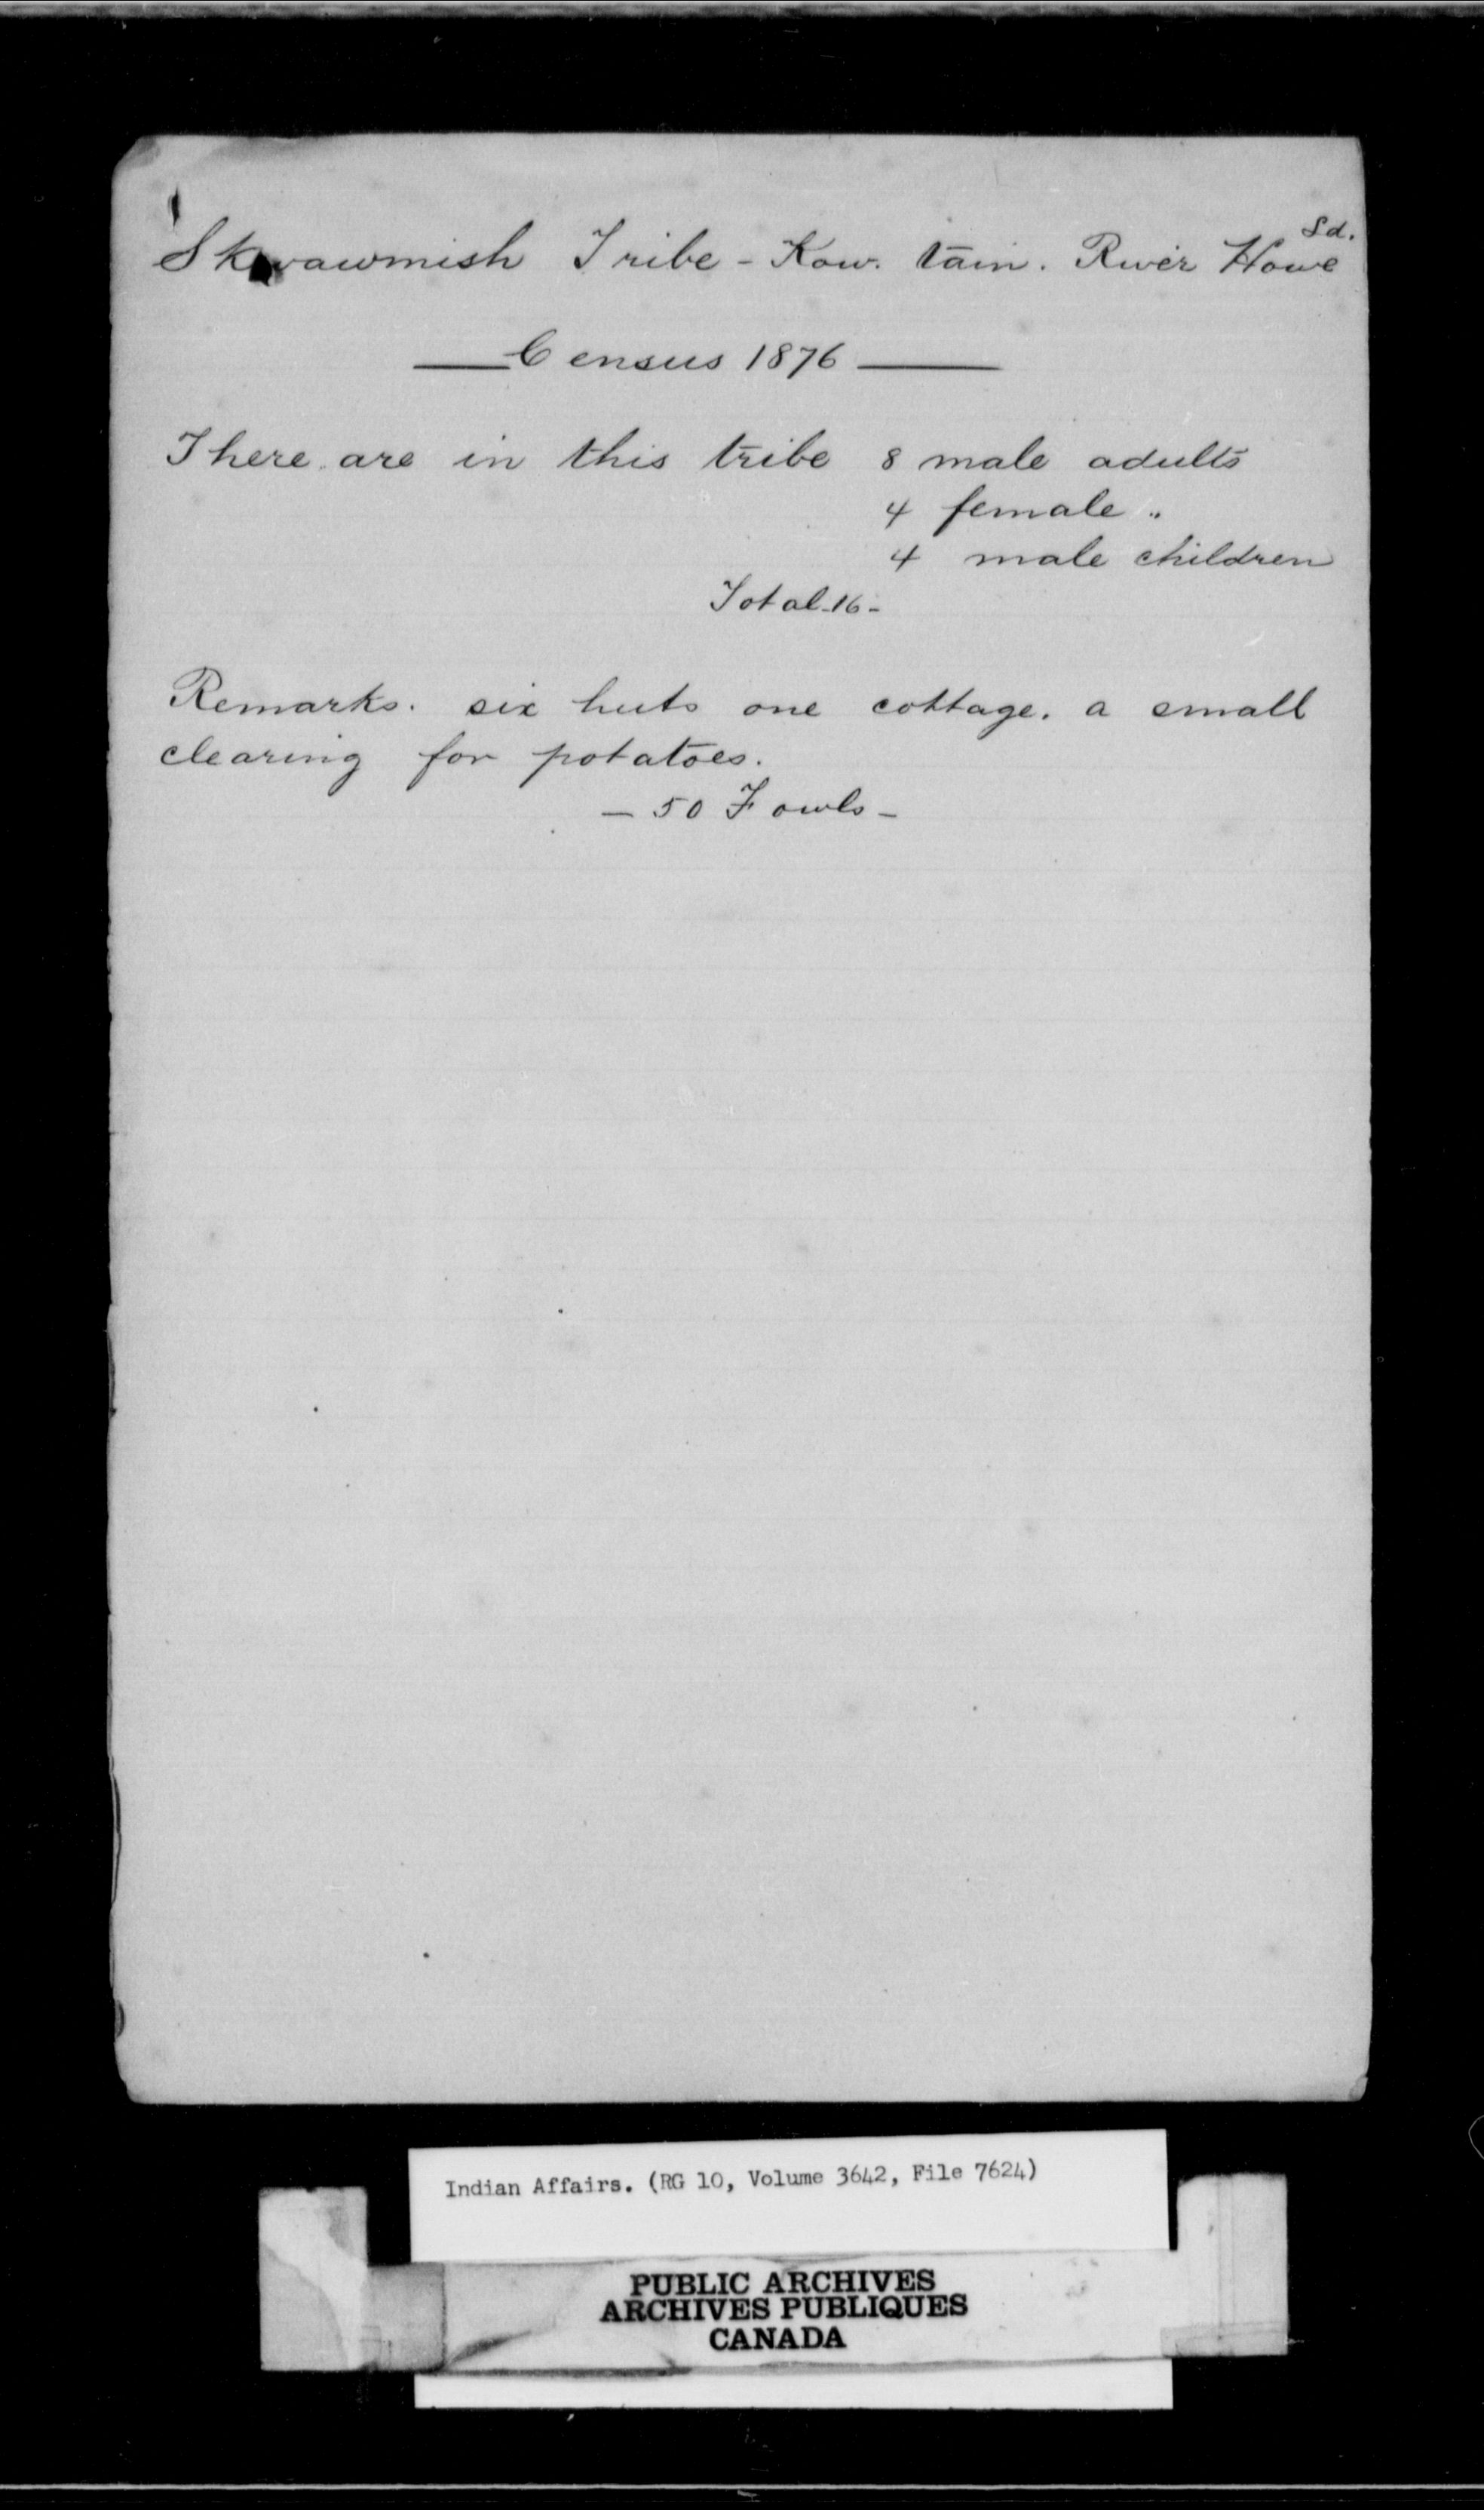 Skwawmish Tribe - Kow. tain. River Howe Sd.
Census 1876
There are in this tribe 8 male adults
4 female "
4 male children
Total - 16 -
Remarks. six huts one cottage. a small
clearing for potatoes.
- 50 Fowls -
Indian Affairs. (RG 10, Volume 3642, File 7624)
PUBLIC ARCHIVES
ARCHIVES PUBLIQUES
CANADA